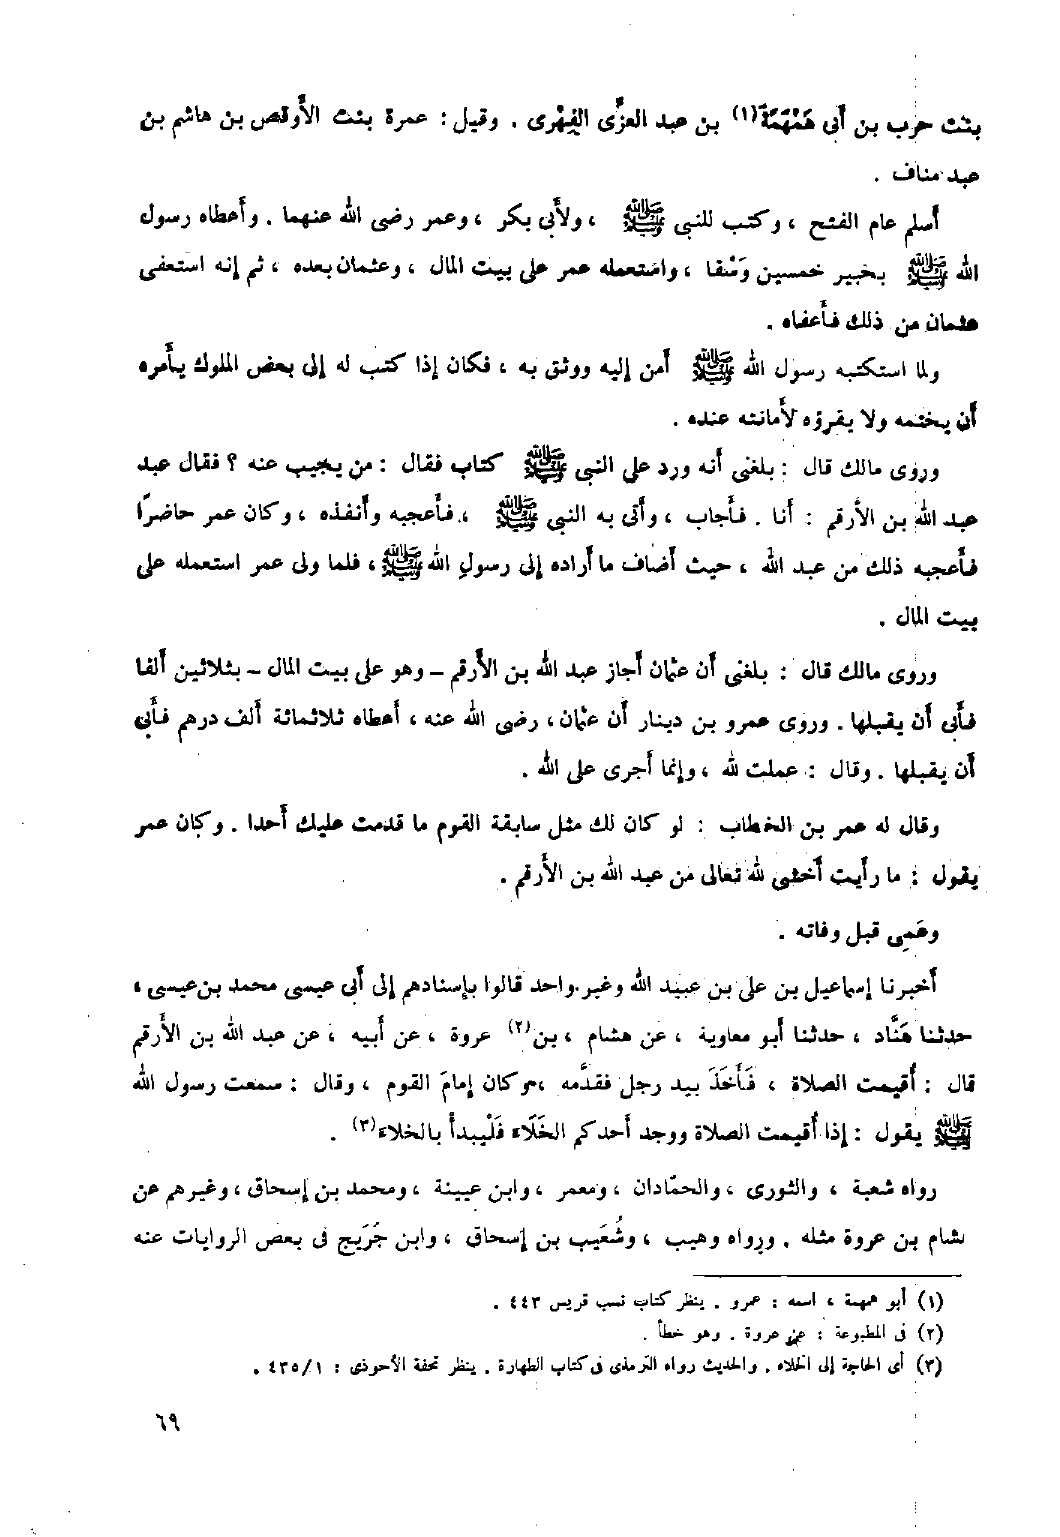 بنت حرب بن أبى هَمْهَمَةَ(١) بن عبد العزَّى الفِهْرى . وقيل : عمرة بنت الأَوقص بن هاشم بن
عبد مناف .
أَسلم عام الفتح ، وكتب للنبى ﷺ ، ولأَبى بكر ، وعمر رضى الله عنهما . وأَعطاه رسول
الله ﷺ بخيبر خمسين وَسْقا ، واستعمله عمر على بيت المال ، وعثمان بعده ، ثم إنه استعفى
عثمان من ذلك فأَعفاه .
ولما استكتبه رسول الله ﷺ أَمن إليه ووثق به ، فكان إذا كتب له إلى بعض الملوك يأْمره
أَن يختمه ولا يقرؤه لأَمانته عنده .
وروى مالك قال : بلغنى أَنه ورد على النبى ﷺ كتاب فقال : من يجيب عنه ؟ فقال عبد
عبد الله بن الأَرقم : أَنا . فأَجاب ، وأَتى به النبى ﷺ ، فأَعجبه وأَنفذه ، وكان عمر حاضرًا
فأَعجبه ذلك من عبد الله ، حيث أَضاف ما أَراده إلى رسول الله ﷺ ، فلما ولى عمر استعمله على
بيت المال .
وروى مالك قال : بلغنى أَن عثمان أَجاز عبد الله بن الأَرقم – وهو على بيت المال – بثلاثين أَلفا
فأَبى أَن يقبلها . وروى عمرو بن دينار أَن عثمان ، رضى الله عنه ، أَعطاه ثلاثمائة أَلف درهم فأَبى
أَن يقبلها . وقال : عملت لله ، وإنما أَجرى على الله .
وقال له عمر بن الخطاب : لو كان لك مثل سابقة القوم ما قدمت عليك أَحدا . وكان عمر
يقول : ما رأَيت أَخشى لله تعالى من عبد الله بن الأَرقم .
وعَمِى قبل وفاته .
أَخبرنا إسماعيل بن على بن عبيد الله وغير واحد قالوا بإسنادهم إلى أَبى عيسى محمد بن عيسى ،
حدثنا هَنَّاد ، حدثنا أَبو معاوية ، عن هشام ، بن(٢) عروة ، عن أَبيه ، عن عبد الله بن الأَرقم
قال : أُقيمت الصلاة ، فَأَخَذَ بيد رجل فقدَّمه ، وكان إمامَ القوم ، وقال : سمعت رسول الله
ﷺ يقول : إذا أُقيمت الصلاة ووجد أَحدكم الخَلَاء فَلْيبدأْ بالخلاء(٣) .
رواه شعبة ، والثورى ، والحمّادان ، ومعمر ، وابن عيينة ، ومحمد بن إسحاق ، وغيرهم عن
شام بن عروة مثله . ورواه وهيب ، وشُعَيب بن إسحاق ، وابن جُرَيج فى بعض الروايات عنه
(١) أبو همهمة ، اسمه : عمرو . ينظر كتاب نسب قريش ٤٤٣ .
(٢) فى المطبوعة : عن عروة . وهو خطأ .
(٣) أى الحاجة إلى الخلاء . والحديث رواه الترمذى فى كتاب الطهارة . ينظر تحفة الأحوذى : ٤٣٥/١ .
٦٩